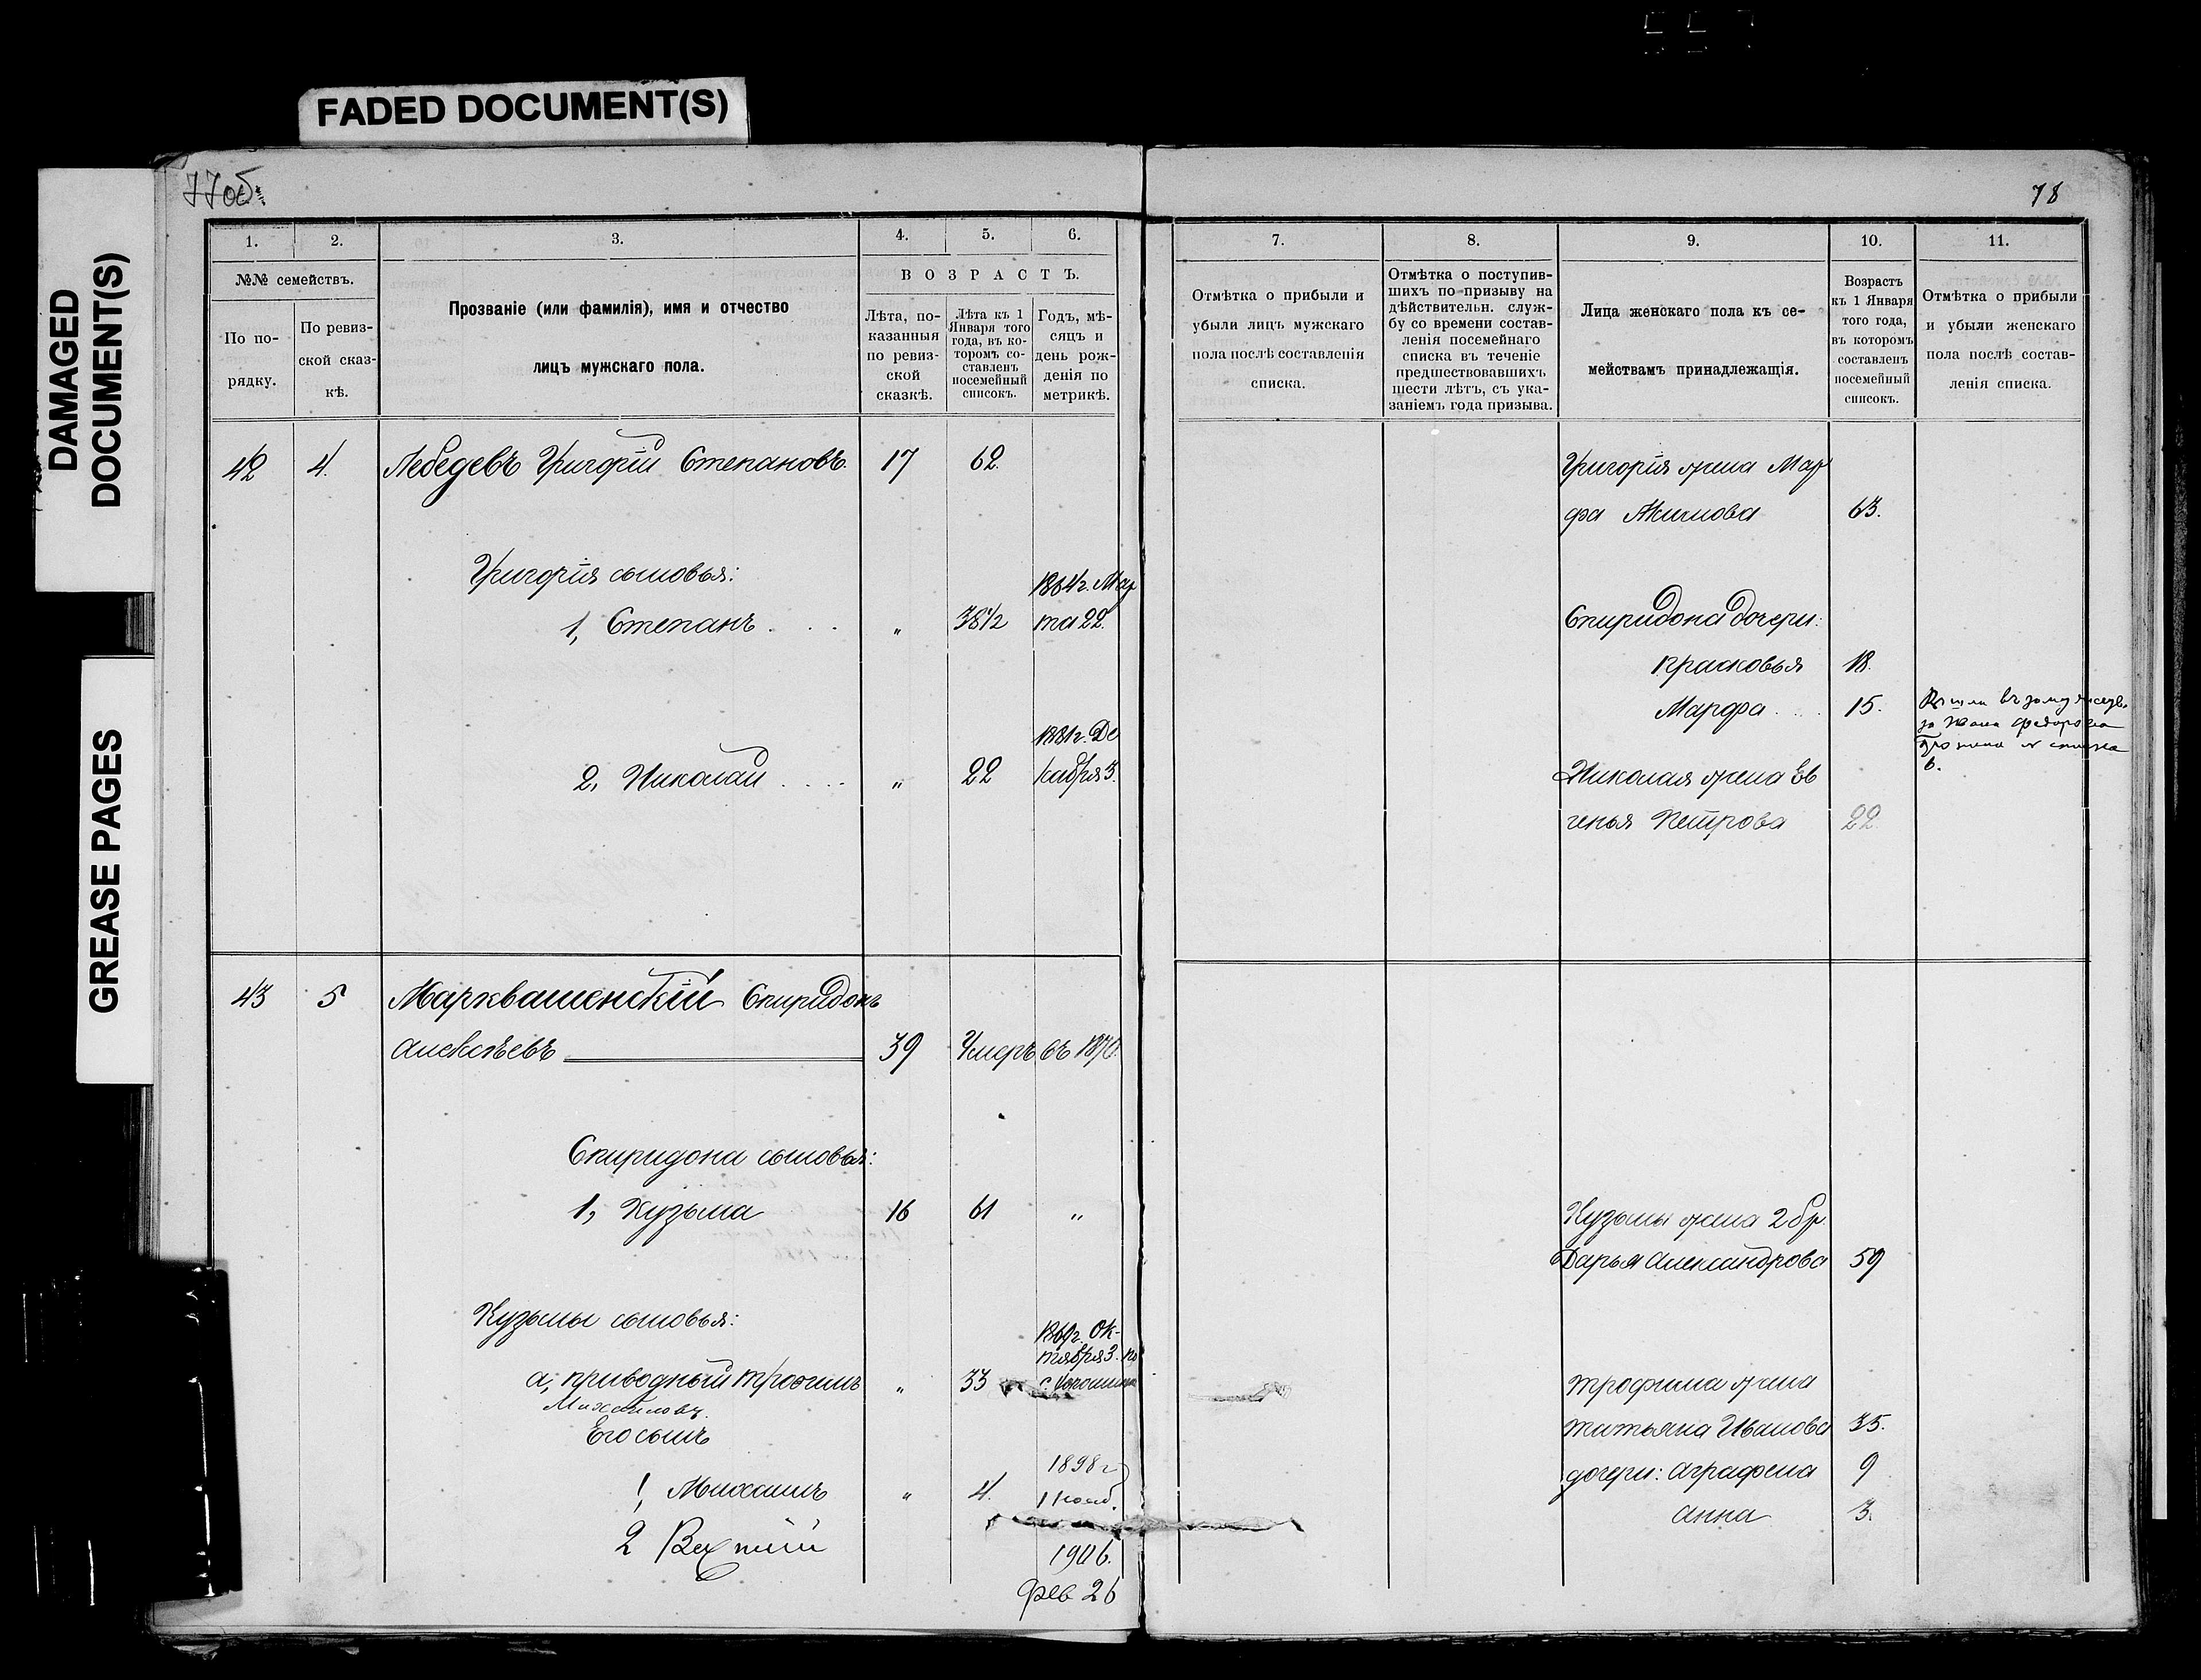 FADED DOCUMENT(S)
DAMAGED
DOCUMENT(S)
GREASE PAGES
77об.
1.
2.
3.
4.
5.
6.
№№ семействъ.
По по-
рядку.
По ревиз-
ской сказ-
кѣ.
Прозваніе (или фамилія), имя и отчество
лицъ мужскаго пола.
ВОЗРАСТЪ.
Лѣта, по-
казанныя
по ревиз-
ской
сказкѣ.
Лѣта къ 1
Января того
года, въ ко-
торомъ со-
ставленъ
посемейный
списокъ.
Годъ, мѣ-
сяцъ и
день рож-
денія по
метрикѣ.
42 4. Лебедевъ Григорій Степановъ. 17 62.
Григорія сыновья:
1864 г. Мар
1, Степанъ . . . „ 38 1/2 та 22.
1881 г. Де
2, Николай . . . . „ 22 кабря 3.
43 5 Марквашенскій Спиридонъ
Алексѣевъ 39 Умеръ въ 1870.
Спиридона сыновья:
1, Кузьма 16 61 „
Кузьмы сыновья:
1869 г. Ок-
тября 3. по
а, приводный Трофимъ „ 33
Михайловъ.
Его сынъ
1898 г
1, Михаилъ „ 4. 1 нояб.
2
1906.
фев 26
78
7.
8.
9.
10.
11.
Отмѣтка о прибыли и
убыли лицъ мужскаго
пола послѣ составленія
списка.
Отмѣтка о поступив-
шихъ по призыву на
дѣйствительн. служ-
бу со времени состав-
ленія посемейнаго
списка въ теченіе
предшествовавшихъ
шести лѣтъ, съ ука-
заніемъ года призыва.
Лица женскаго пола къ се-
мействамъ принадлежащія.
Возрастъ
къ 1 Января
того года,
въ которомъ
составленъ
посемейный
списокъ.
Отмѣтка о прибыли
и убыли женскаго
пола послѣ состав-
ленія списка.
Григорія жена Мар
фа Акимова 63.
Спиридона дочери:
Прасковья 18.
Марфа . . . 15.
за Ивана Федорова
6.
Николая жена Ев
генья Петрова 22.
Кузьмы жена 2 бр.
Дарья Александрова 59
Трофима жена
Татьяна Иванова 35.
дочери: Аграфена 9
Анна 3.